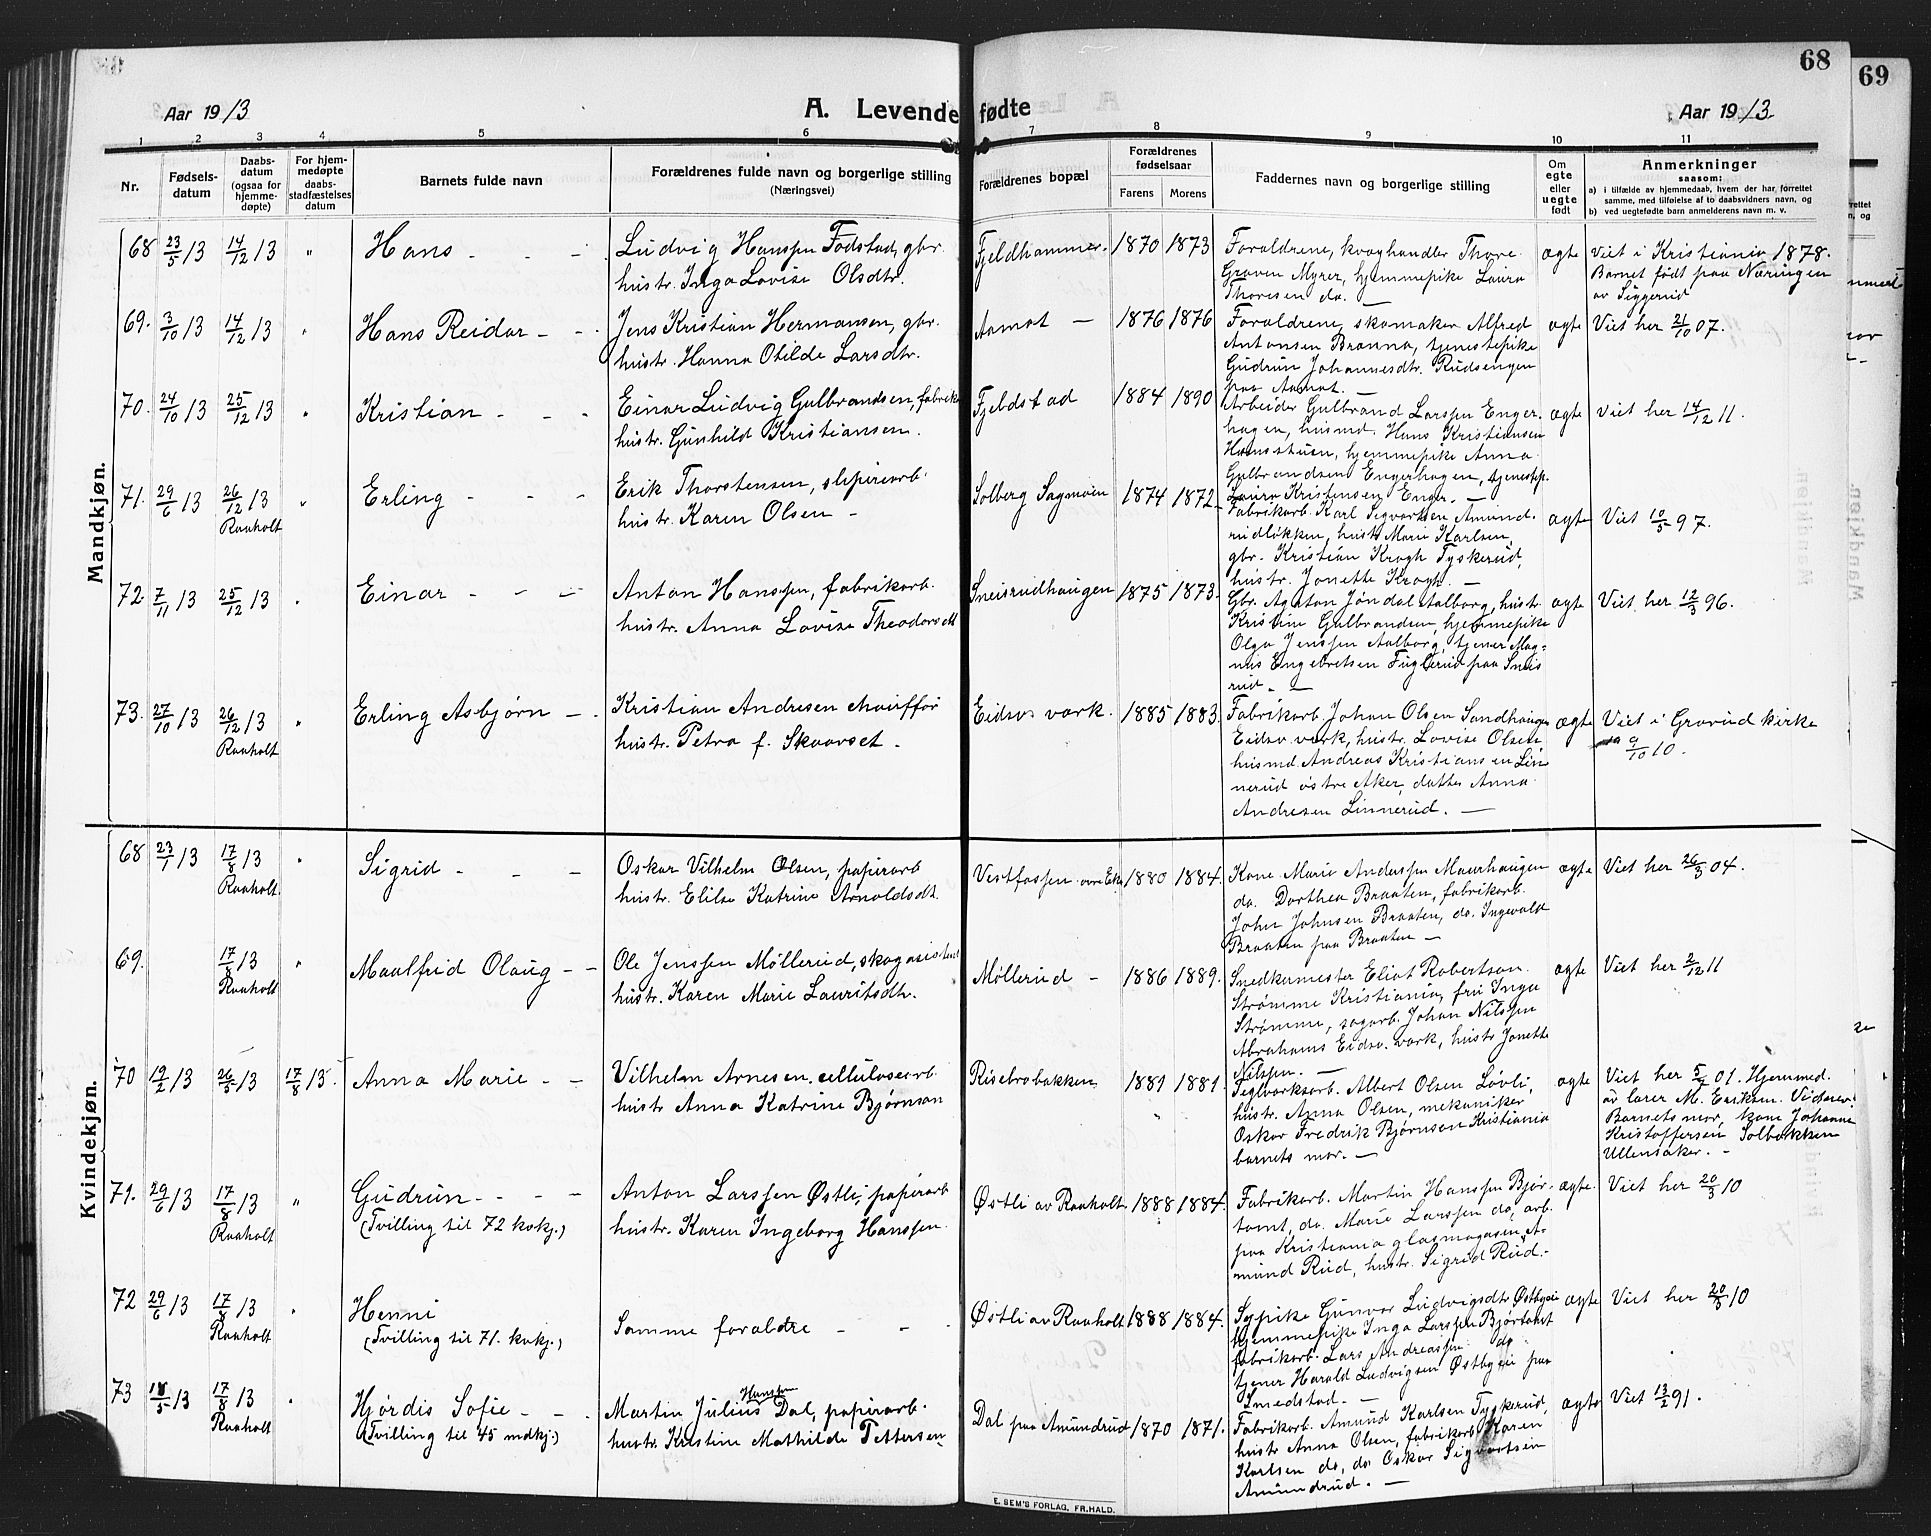 68
69
Aar 1913
A. Levende fødte
Aar 1913
1 2 3 4 5 6 7 8 9 10 11
Nr.
Fødsels-
datum
Daabs-
datum
(ogsaa for
hjemme-
døpte)
For hjem-
medøpte
daabs-
stadfæstelses
datum
Barnets fulde navn
Forældrenes fulde navn og borgerlige stilling
(Næringsvei)
Forældrenes bopæl
Forældrenes
fødselsaar
Farens Morens
Faddernes navn og borgerlige stilling
Om
egte
eller
uegte
født
Anmerkninger
saasom:
a) i tilfælde av hjemmedaab, hvem der har forrettet
samme, med tilføielse af to daabsvidners navn, og
b) ved uegtefødte barn anmelderens navn m. v.
Mandkjøn.
68 23/5 13 14/12 13 " Hans
Ludvig Hanssen Fodstad, gbr.
hustr. Inga Lovise Olsdtr.
Fjeldhammer. 1870 1873
Forældrene, kvæghandler Thore
Graven Myrer, hjemmepike Laura
Thoresen do. —
ægte
Viet i Kristiania 1878.
Barnet født paa Næringen
av Siggerud
69. 3/10 13 14/12 13 " Hans Reidar
Jens Kristian Hermansen, gbr.
hustr. Hanna Otilde Larsdtr.
Aamot — 1876 1876
Forældrene, skomaker Alfred
Antonsen Brænna, tjenestepike
Gudrun Johannesdtr. Rudsengen
paa Aamot. —
ægte
Viet her 21/10 07.
70. 24/10 13 25/12 13 " Kristian
Einar Ludvig Gulbrandsen, fabrik
hustr. Gunhild Kristiansen.
Fjeldstad 1884 1890
Arbeider Gulbrand Larssen Enger-
hagen, husmd. Hans Kristiansen
Hansstuen, hjemmepike Anna
Gulbrandsen Engerhagen, tjenestep.
Laura Kristensen Enger. —
ægte
Viet her 14/12 11.
71. 29/6 13 26/12 13 " Erling
Raaholt
Erik Thorstensen, sliperiarb.
hustr. Karen Olsen —
Solberg Sagmoen 1874 1872
Fabrikarb. Karl Sigvartsen Amund-
rudløkken, hustr. Marie Karlsen,
gbr. Kristian Krogh Tyskerud,
hustr. Jonette Krogh. —
ægte
Viet 10/5 97.
72. 7/11 13 25/12 13 " Einar
Anton Hanssen, fabrikarb.
hustr. Anna Lovise Theodorsdtr
Sneisrudhaugen 1875 1873.
Gbr. Agaton Jøndal Aalborg, hustr.
Kristine Gulbrandsen, hjemmepike
Olga Jenssen Aalborg, tjener Mag-
nus Engebretsen Fuglerud paa Sneis
rud. —
ægte
Viet her 12/3 96.
73. 27/10 13 26/12 13 " Erling Asbjørn
Raaholt
Kristian Andresen chauffør
hustr. Petra f. Skaavset —
Eidsvs værk. 1885 1883.
Fabrikarb. Johan Olsen Sandhaugen
Eidsv. værk, hustr. Lovise Olsen,
husmd. Andreas Kristiansen Lin-
nerud østre Aker, datter Anna
Andresen Linnerud. —
ægte
Viet i Grorud kirke
9/10 10.
Kvindekjøn.
68 23/1 13 17/8 13 " Sigrid
Raaholt
Oskar Vilhelm Olsen, papirarb
hustr. Elise Katrine Arnoldsdt.
Vestfossen øvre Eker 1880 1884.
Kone Marie Anderssen Maurhaugen
do. Dorthea Braaten, fabrikarb.
John Johnsen Braaten, do. Ingevald
Braaten paa Braaten —
ægte
Viet her 26/3 04.
69. 17/8 13 " Maalfrid Olaug
Raaholt
Ole Jenssen Møllerud, skogasistent
hustr. Karen Marie Lauritsdtr.
Møllerud — 1886 1889.
Snedkermester Eliot Robertson
Strømme Kristiania, fru Inga
Strømme, sagarb. Johan Nilssen
Abrahams Eidsv. værk, hustr Jonette
Nilssen. —
ægte
Viet her 2/12 11
70 19/2 13 26/5 13 17/8 13. Anna Marie
Vilhelm Arnesen, cellulosearb
hustr Anna Katrine Bjørnson
Risebrobakken 1881 1881.
Teglværksarb. Albert Olsen Løvli,
hustr. Anna Olsen, mekaniker
Oskar Fredrik Bjørnsen Kristiania
barnets mor. —
ægte
Viet her 5/7 01. Hjemmed.
av lærer M. Eriksen. Vidner:
Barnets mor, kone Johanne
Kristoffersen Solbakken
Ullensaker. —
71. 29/6 13 17/8 13 " Gudrun
Raaholt (Tvilling til 72 kvkj.)
Anton Larssen Østli, papirarb
hustr. Karen Ingeborg Hanssen
Østli av Raaholt 1888 1884.
Fabrikarb. Martin Hanssen Bjør-
tomt, do. Marie Larssen do, arb.
paa Kristiania glasmagasin A-
mund Rud, hustr. Sigrid Rud. —
ægte.
Viet her 20/3 10
72 29/6 13 17/8 13 " Henni
Raaholt (Tvilling til 71. kvkj.)
Samme forældre
Østli av Raaholt 1888 1884.
Sypike Gunvor Ludvigsdtr. Østbyeie
hjemmepike Inga Larssen Bjørtomt
fabrikarb. Lars Andreassen do
tjener Harald Ludvigsen Østbyeie paa
Smedstad. —
ægte
Viet her 20/3 10
73 18/5 13 17/8 13 " Hjørdis Sofie
Raaholt (Tvilling til 45 mdkj.)
Martin Julius Hanssen Dal, papirarb.
hustr. Kristine Mathilde Pettersen
Dal paa Amundrud 1870 1871.
Fabrikarb. Amund Karlsen Tyskerud,
hustr Anna Olsen, fabrikarb Karen
Karlsen do, do Oskar Sigvartsen
Amundrud. —
ægte
Viet 13/2 91.
E. SEM'S FORLAG, FR.HALD.